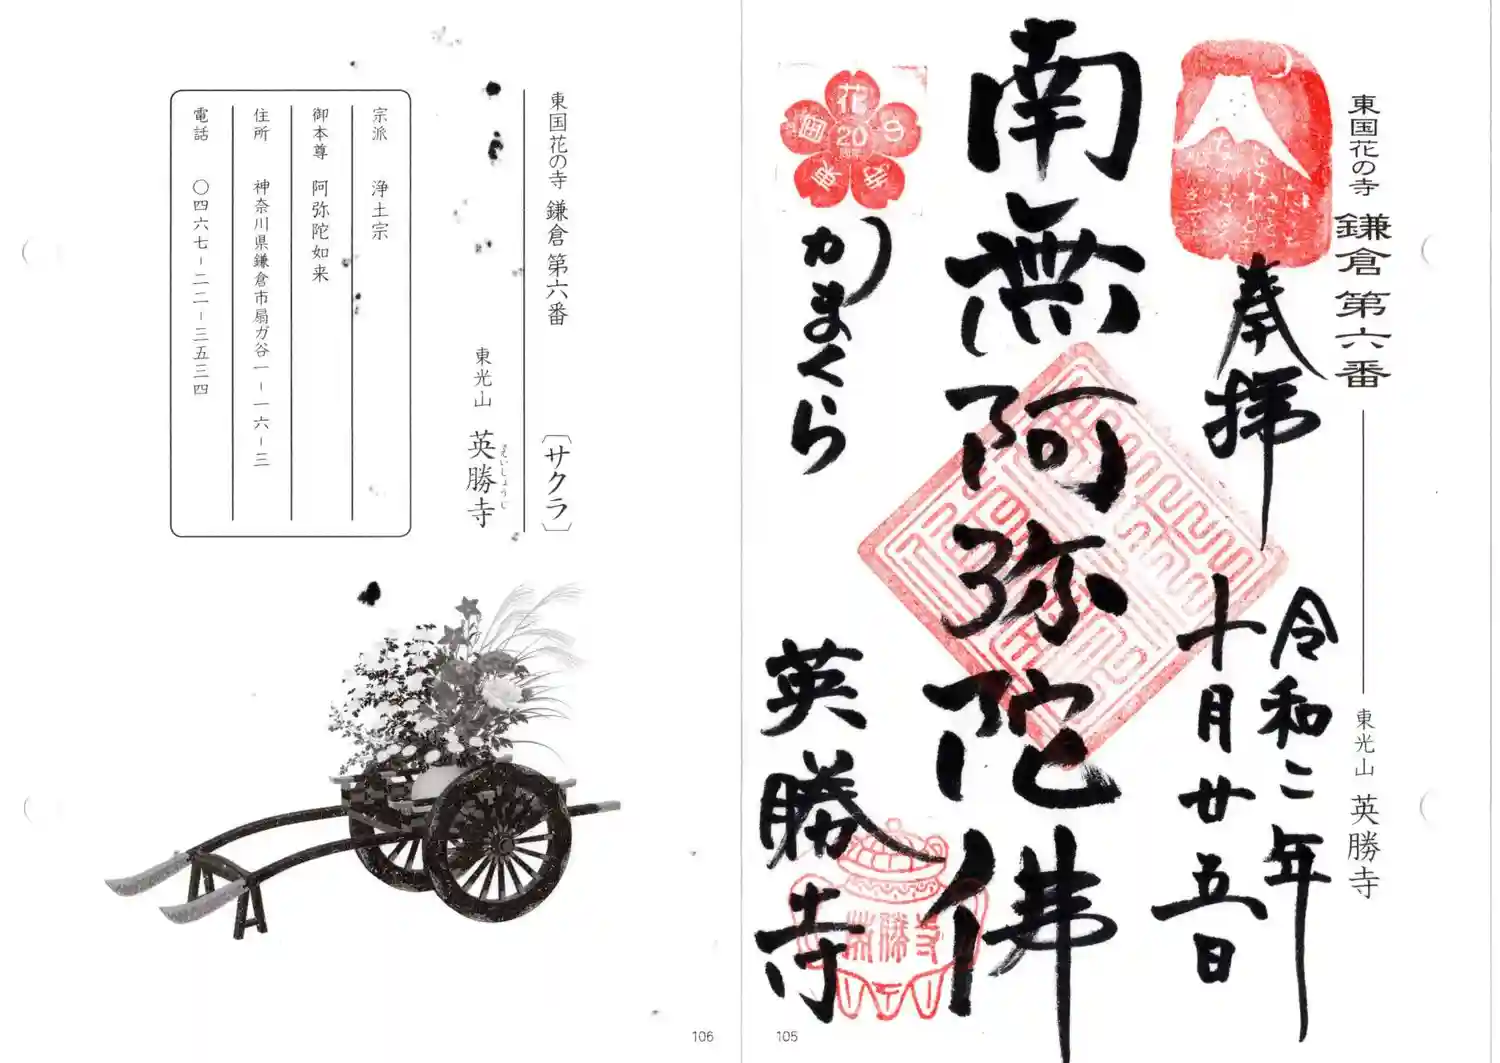 東国花の寺 鎌倉 第六番
東光山 英勝寺
奉拝
令和二年
十月廿五日
南無阿弥陀佛
花の寺東国
20
かまくら
英勝寺
英勝寺
105
東国花の寺 鎌倉 第六番 〔サクラ〕
東光山 英勝寺
えいしょうじ
宗派 浄土宗
御本尊 阿弥陀如来
住所 神奈川県鎌倉市扇ガ谷一-一六-三
電話 〇四六七-二二-三五三四
106